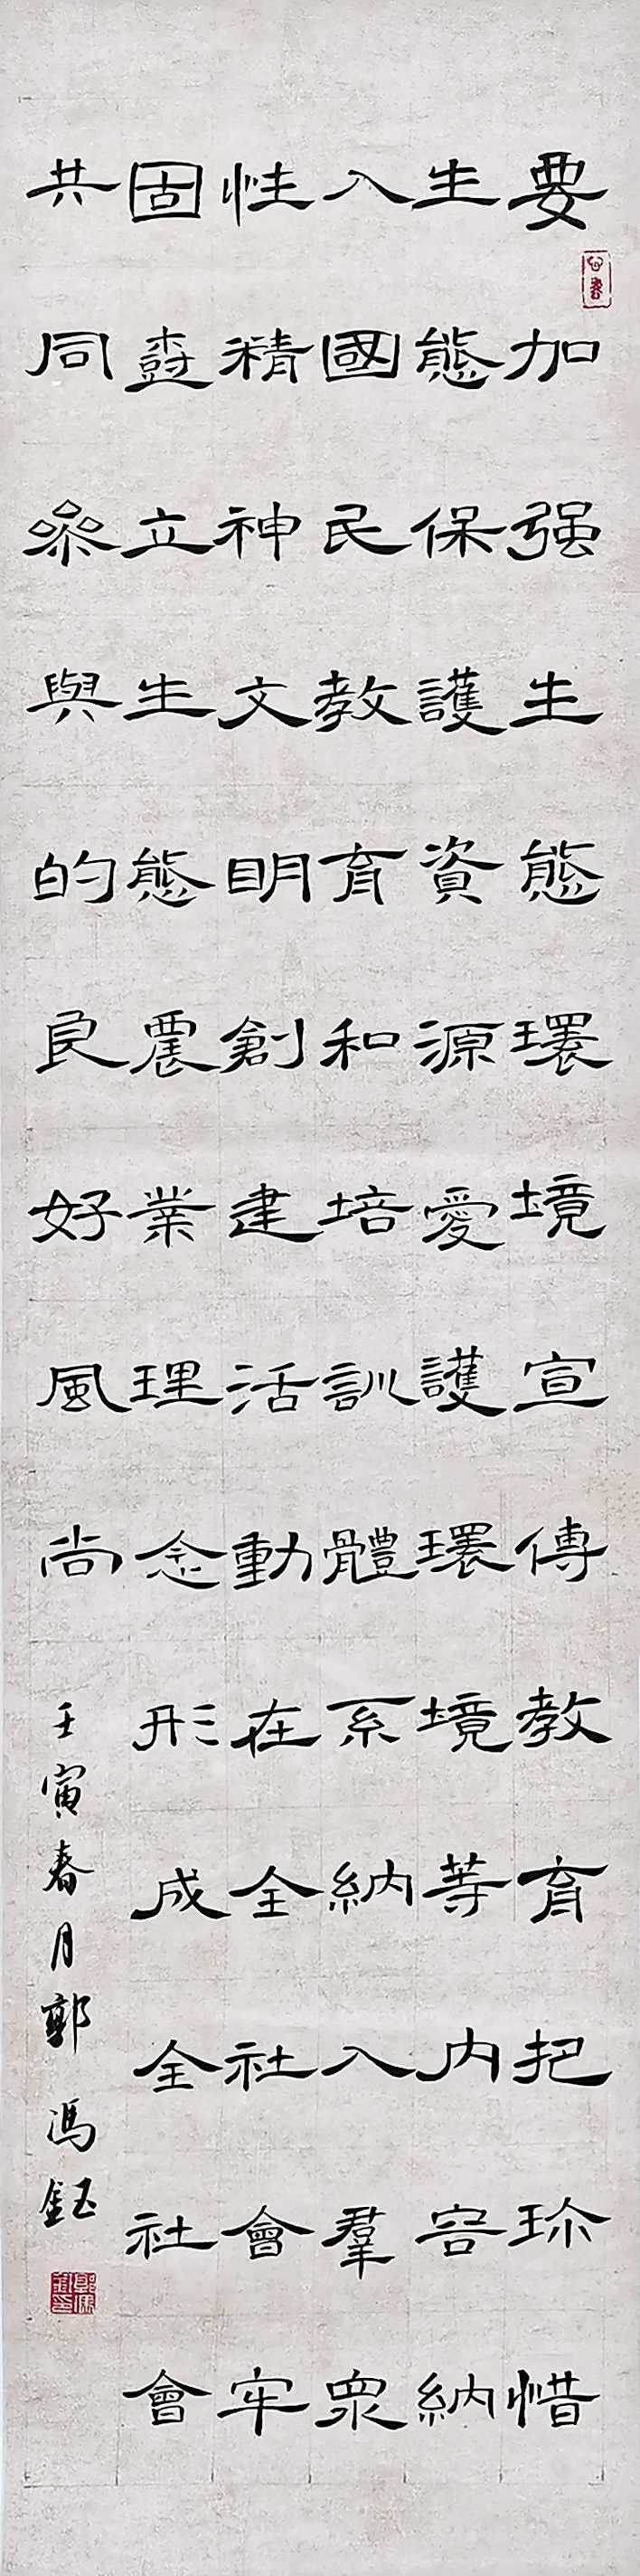 要加强生態環境宣傳教育把珎惜
生態保護資源愛護環境等内容納
入國民教育和培訓體系納入羣衆
性精神文明創建活動在全社會牢
固壴立生態農業理念形成全社會
共同參與的良好風尚
壬寅春月郭馮鈺